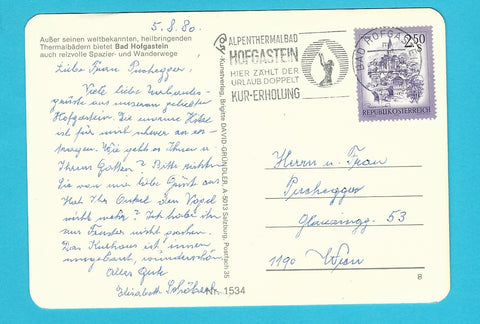 5.8.80.
Außer seinen weltbekannten, heilbringenden
Thermalbädern bietet Bad Hofgastein
auch reizvolle Spazier- und Wanderwege
Liebe Frau Puschegger,
Viele liebe Urlaubs-
grüße aus unserem geliebten
Hofgastein. Die enorme Hitze
ist für mich schwer zu er-
tragen. Wie geht es Ihnen u
Ihrem Gatten? Bitte richten
Sie von mir liebe Grüße aus
Hat Ihr Onkel den Vogel
nicht mehr? Ich habe ihn
nur Fenster nicht gesehen.
Das Kurhaus ist innen
umgebaut, wunderschön
Alles Gute
Elisabeth
Cosy-Kunstverlag, Brigitte DAVID-GRÜNDLER, A-5013 Salzburg, Postfach 35
Nr. 1534
ALPENTHERMALBAD
HOFGASTEIN
HIER ZÄHLT DER
URLAUB DOPPELT
KUR-ERHOLUNG
BAD HOFGASTEIN
2,50
S
REPUBLIK ÖSTERREICH
Herrn u. Frau
Puschegger
53
1190 Wien
8